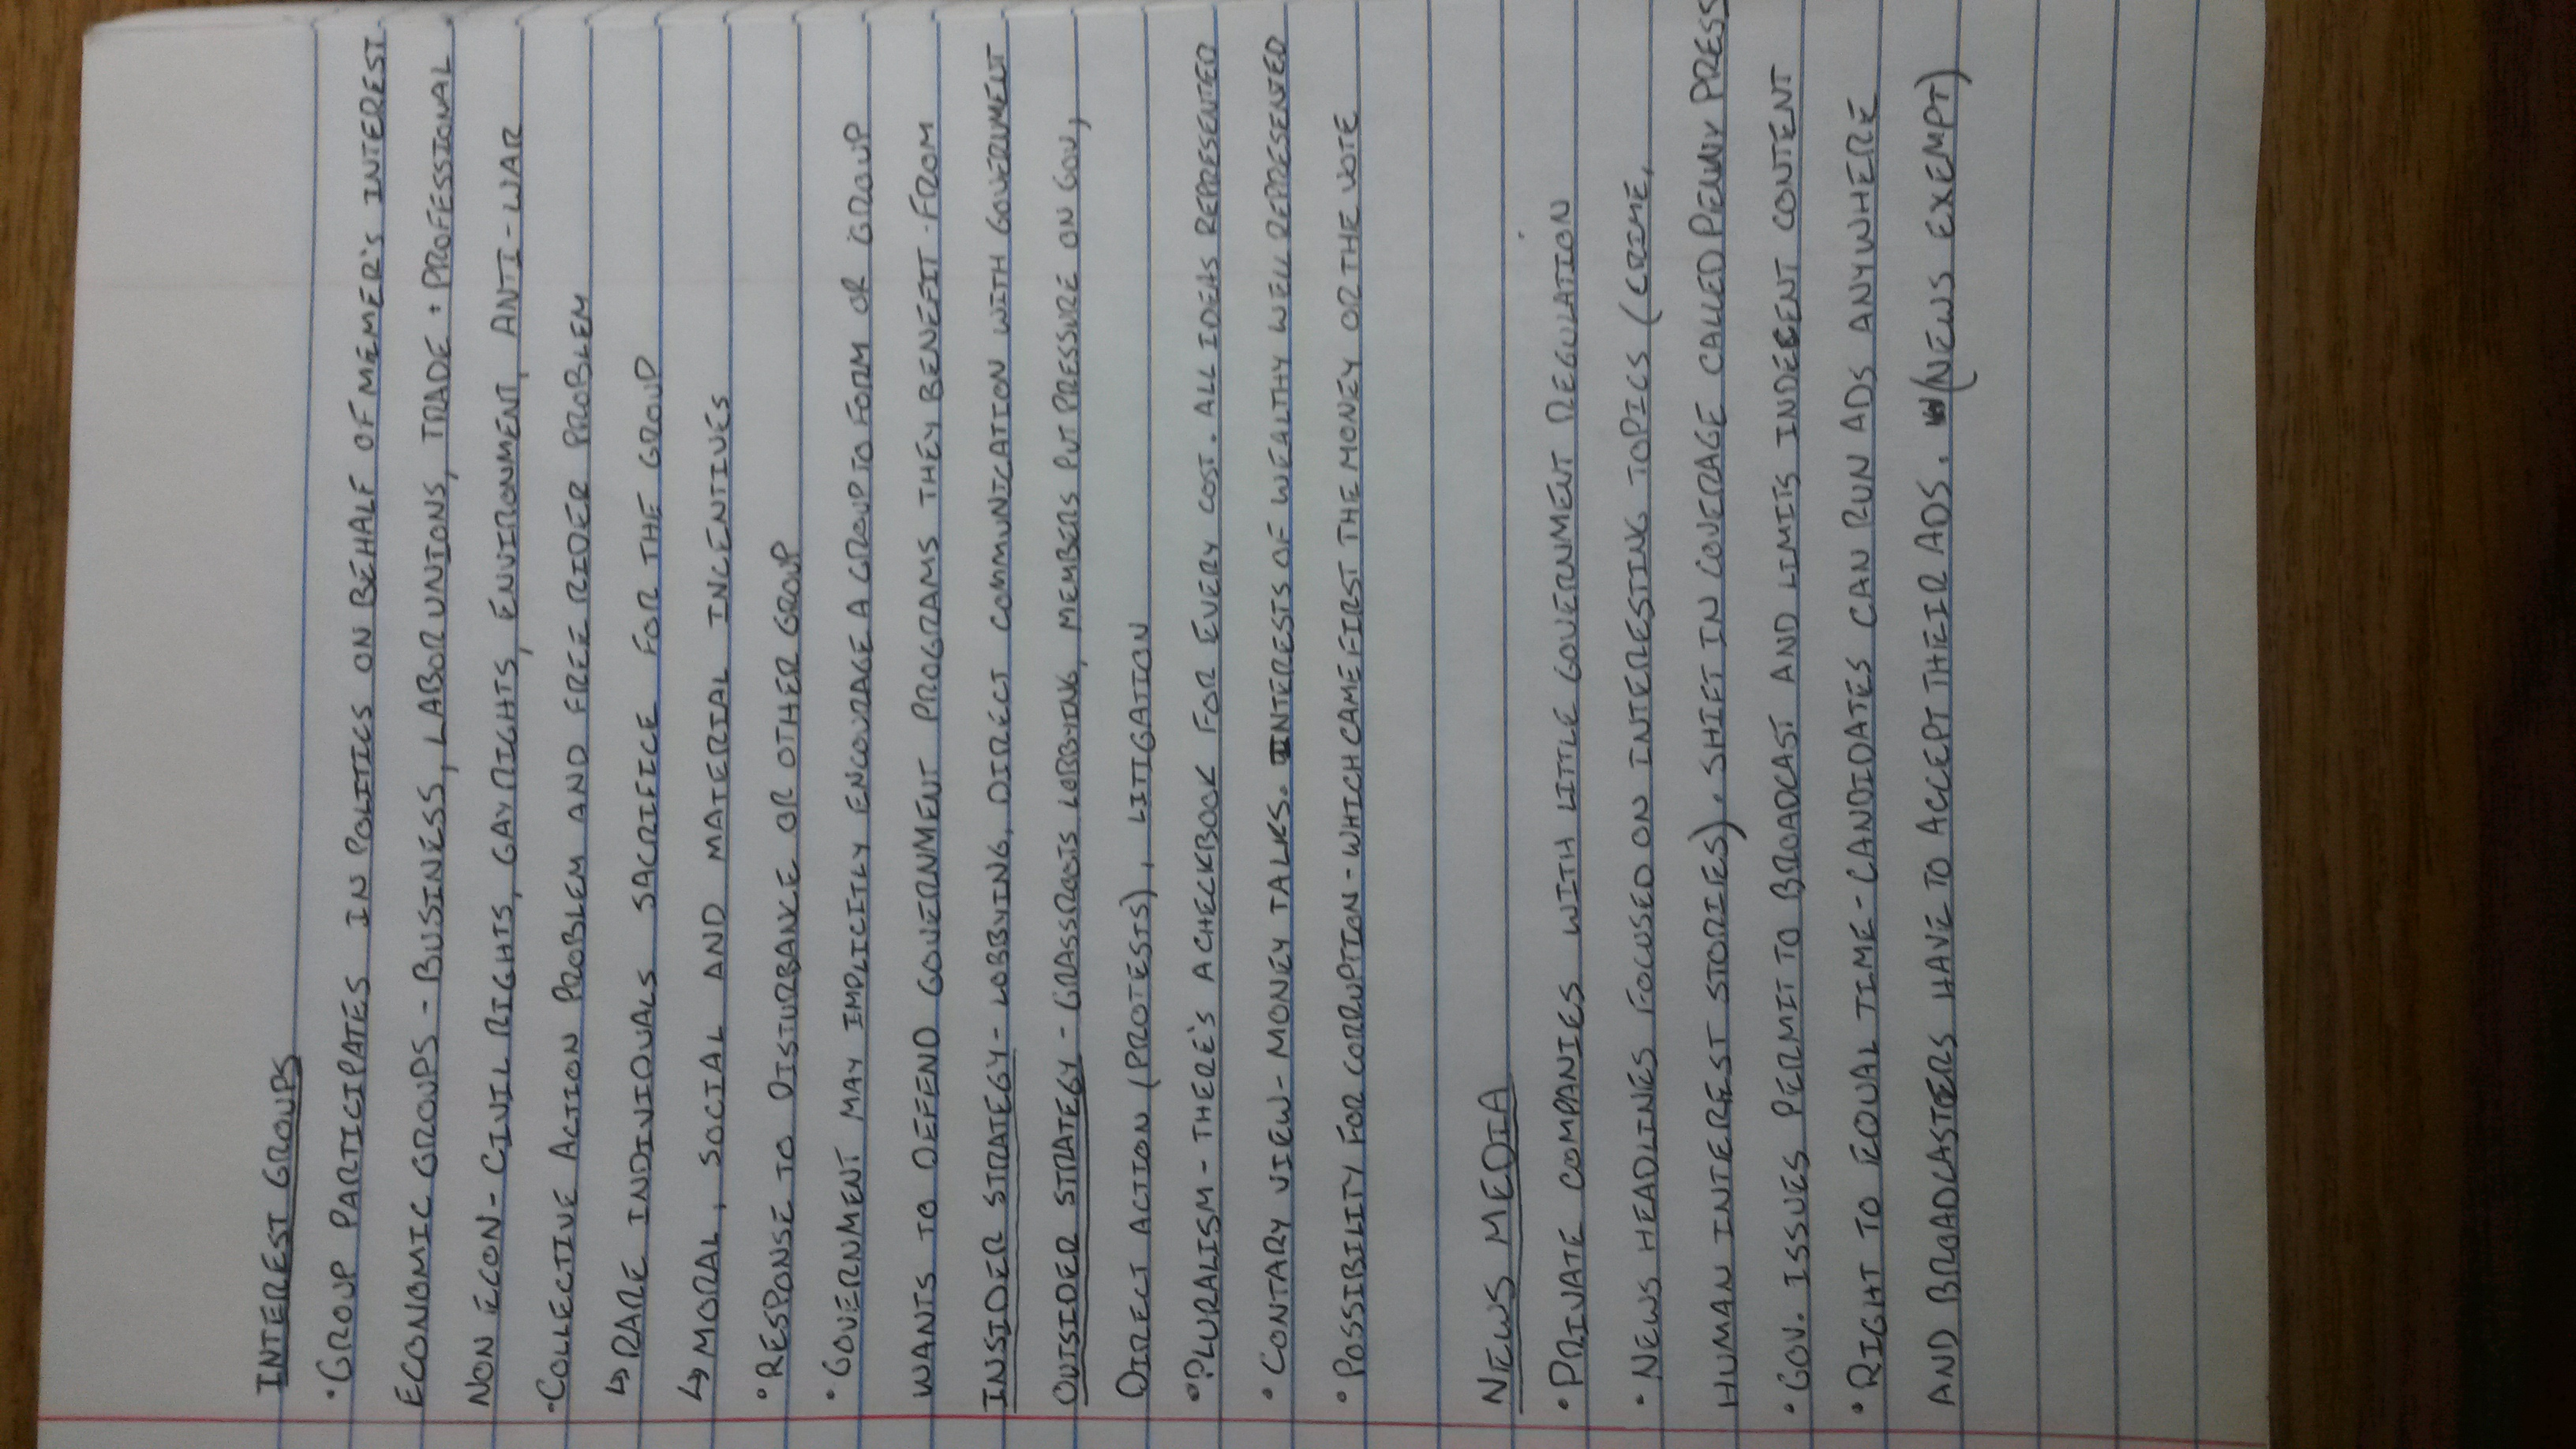 INTEREST GROUPS
• GROUP PARTICIPATES IN POLITICS ON BEHALF OF MEMER'S INTEREST
ECONOMIC GROUPS - BUSINESS, LABOR UNIONS, TRADE + PROFESSIONAL
NON ECON - CIVIL RIGHTS, GAY RIGHTS, ENVIRONMENT, ANTI-WAR
• COLLECTIVE ACTION PROBLEM AND FREE RIDER PROBLEM
↳ RARE INDIVIDUALS SACRIFICE FOR THE GROUP
↳ MORAL, SOCIAL AND MATERIAL INCENTIVES
• RESPONSE TO DISTURBANKE OR OTHER GROUP
• GOVERNMENT MAY IMPLICITLY ENCOURAGE A GROUP TO FORM OR GROUP
WANTS TO DEFEND GOVERNMENT PROGRAMS THEY BENEFIT FROM
INSIDER STRATEGY - LOBBYING, DIRECT COMMUNICATION WITH GOVERNMENT
OUTSIDER STRATEGY - GRASSROOTS LOBBYING, MEMBERS PUT PRESSURE ON GOV,
DIRECT ACTION (PROTESTS), LITIGATION
• PLURALISM - THERE'S A CHECKBOOK FOR EVERY COST. ALL IDEAS REPRESENTED
• CONTARY VIEW - MONEY TALKS. INTERESTS OF WEALTHY WELL REPRESENTED
• POSSIBILITY FOR CORRUPTION - WHICH CAME FIRST THE MONEY OR THE VOTE
NEWS MEDIA
• PRIVATE COMPANIES WITH LITTLE GOVERNMENT REGULATION
• NEWS HEADLINES FOCUSED ON INTERESTING TOPICS (CRIME,
HUMAN INTEREST STORIES). SHIFT IN COVERAGE CALLED PENNY PRESS
• GOV. ISSUES PERMIT TO BROADCAST AND LIMITS INDECENT CONTENT
• RIGHT TO EQUAL TIME - CANDIDATES CAN RUN ADS ANYWHERE
AND BROADCASTERS HAVE TO ACCEPT THEIR ADS. (NEWS EXEMPT)